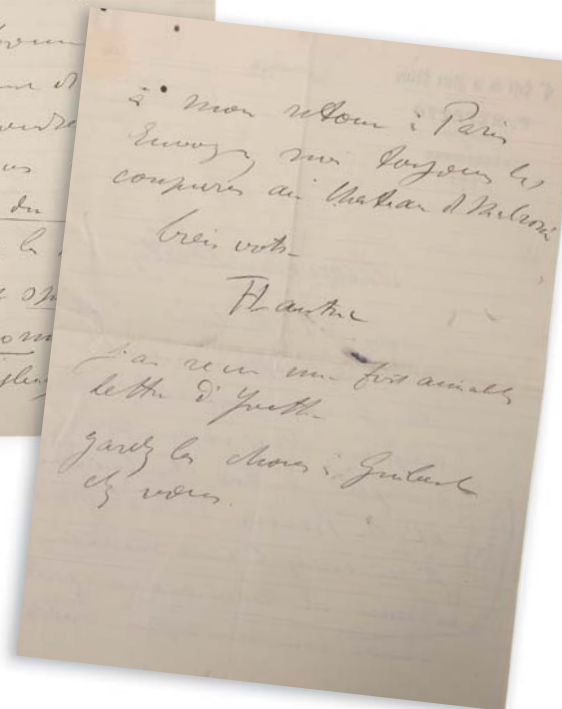 du
la
à mon retour à Paris
Envoyez moi toujours les
coupures au Chateau d
bien votre
HLautrec
J'ai reçu une fort aimable
lettre d'Yvette
gardez les choses à Guibert
chez vous.